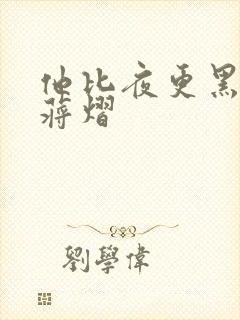 他比夜更黑
蔣熠
劉學偉